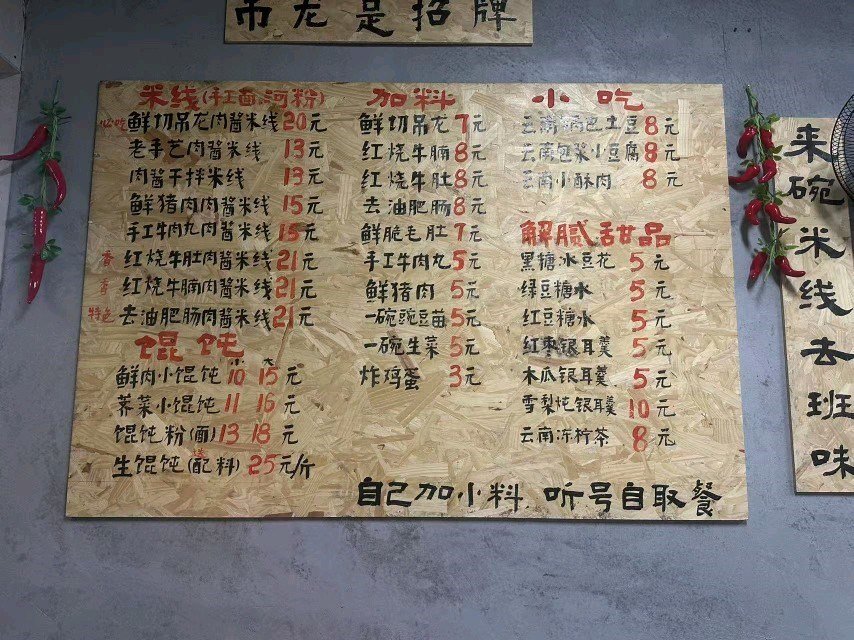 吊龙是招牌
米线(手工面、河粉)
必吃 鲜切吊龙肉酱米线 20元
老手艺肉酱米线 13元
肉酱干拌米线 13元
鲜猪肉肉酱米线 15元
手工牛肉丸肉酱米线 15元
香 红烧牛肚肉酱米线 21元
香 红烧牛腩肉酱米线 21元
特色 去油肥肠肉酱米线 21元
馄饨
小 大
鲜肉小馄饨 10 15元
荠菜小馄饨 11 16元
馄饨粉(面) 13 18元
生馄饨(配料) 25元/斤
加料
鲜切吊龙 7元
红烧牛腩 8元
红烧牛肚 8元
去油肥肠 8元
鲜脆毛肚 7元
手工牛肉丸 5元
鲜猪肉 5元
一碗豌豆苗 5元
一碗生菜 5元
炸鸡蛋 3元
小吃
土豆 8元
云南包浆小豆腐 8元
云南小酥肉 8元
解腻甜品
黑糖水豆花 5元
绿豆糖水 5元
红豆糖水 5元
红枣银耳羹 5元
木瓜银耳羹 5元
雪梨炖银耳羹 10元
云南冻柠茶 8元
自己加小料,听号自取餐
来碗米线去班味